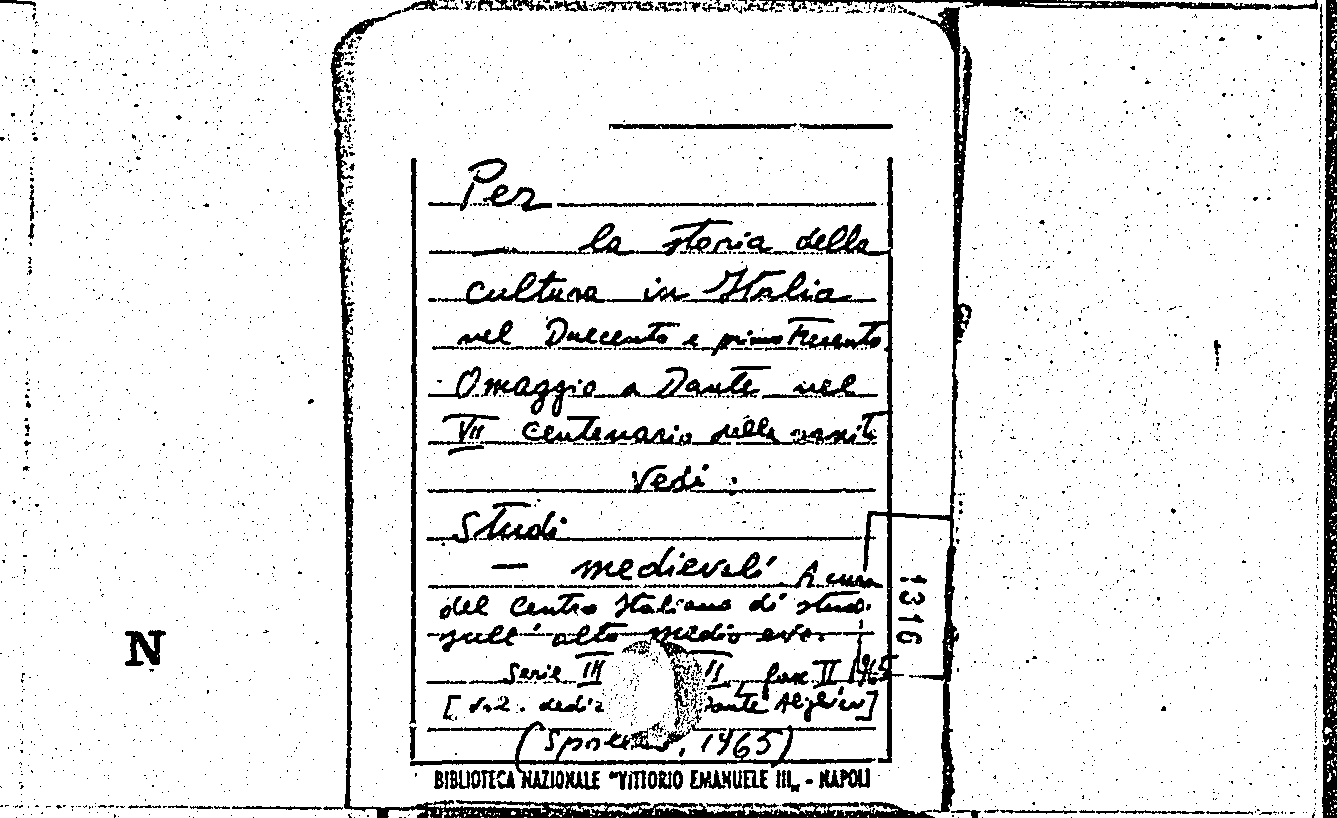 Per
— la storia della
cultura in Italia
nel Duecento e primo Trecento.
Omaggio a Dante nel
VII centenario della nascita
Vedi:
Studi
— medievali. A cura
del Centro Italiano di studi
sull'alto medio evo.
Serie III II, fasc II 1965
[Vol. dedic Dante Alighieri]
(Spoleto, 1965)
BIBLIOTECA NAZIONALE "VITTORIO EMANUELE III„ - NAPOLI
1316
N